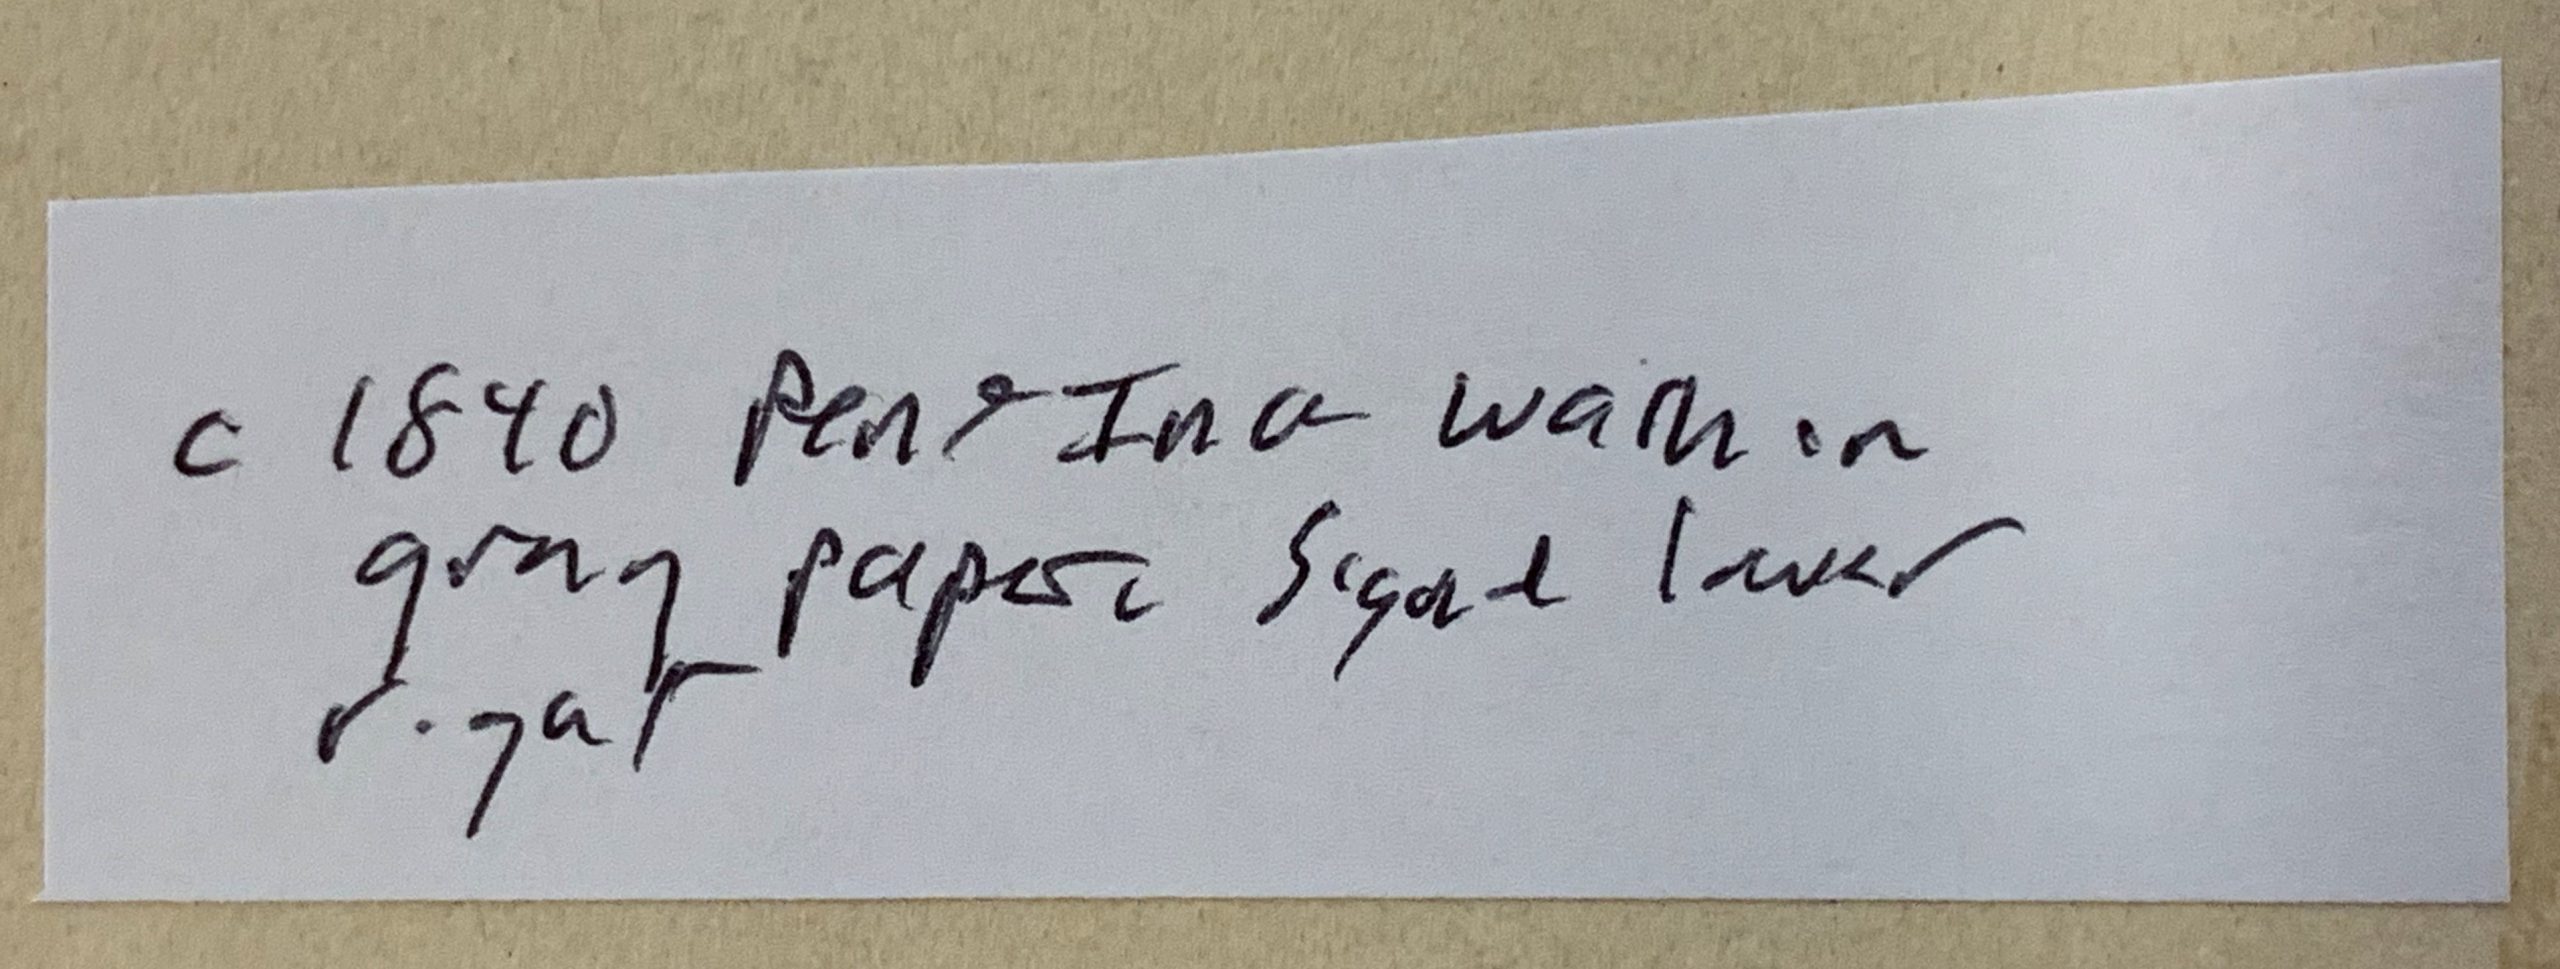 c 1840 Pen & Ink wash on
gray paper. Signed lower
right